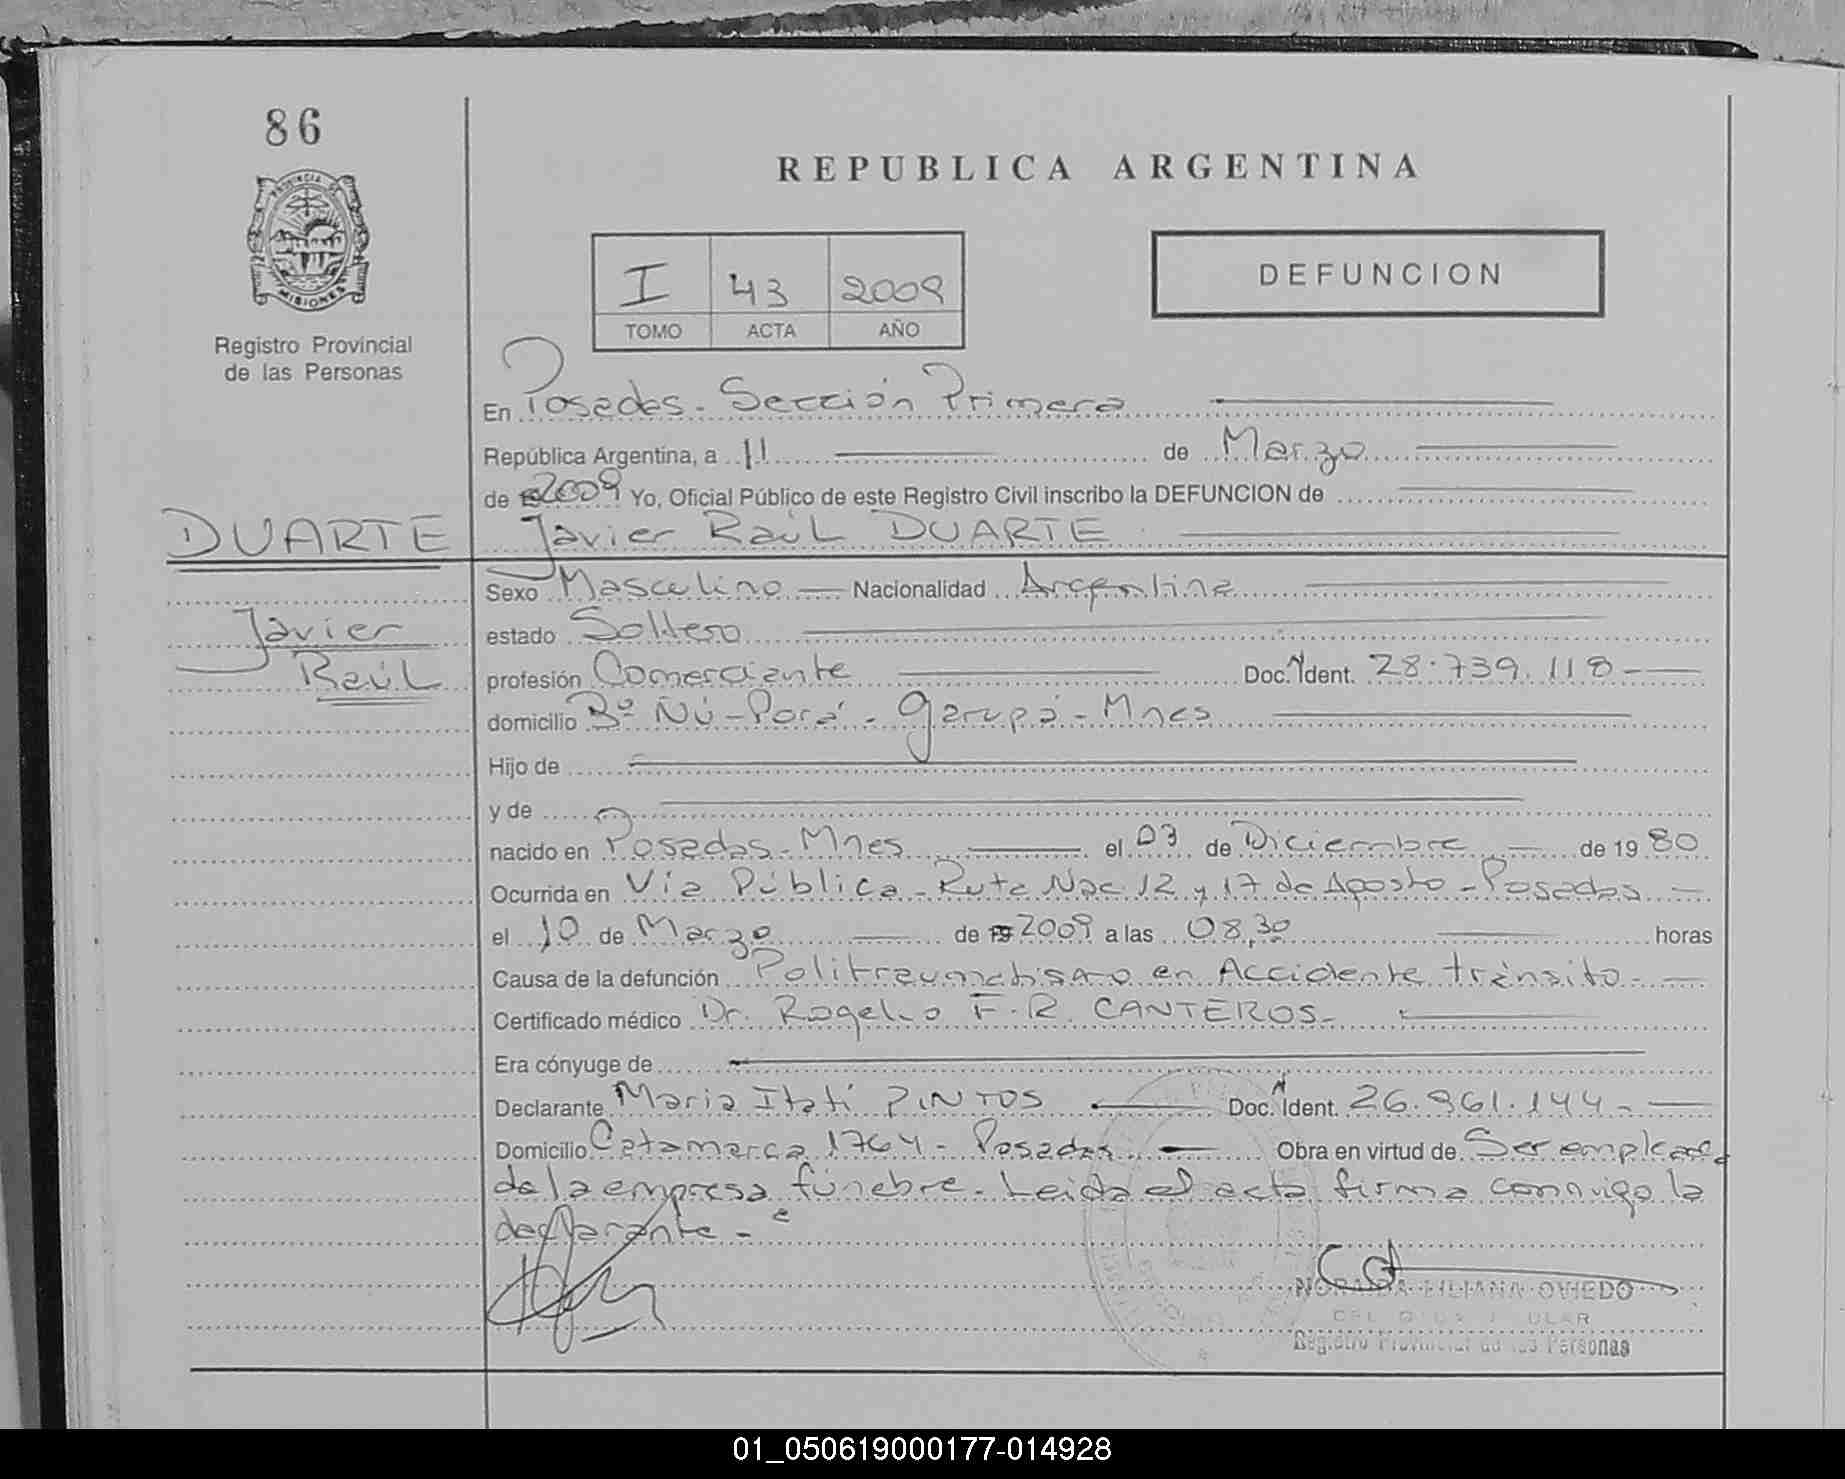 86
PROVINCIA DE
MISIONES
Registro Provincial
de las Personas
REPUBLICA ARGENTINA
I 43 2009
TOMO ACTA AÑO
DEFUNCION
En Posadas - Sección Primera
República Argentina, a 11 de Marzo
de 2009 Yo, Oficial Público de este Registro Civil inscribo la DEFUNCION de
DUARTE
Javier Raúl DUARTE
Javier
Raúl
Sexo Masculino Nacionalidad Argentina
estado Soltero
profesión Comerciante Doc. N Ident. 28.739.118
domicilio Bº Ñú-Porá - Garupá - Mnes
Hijo de
y de
nacido en Posadas - Mnes el 03 de Diciembre de 1980
Ocurrida en Vía Pública - Ruta Nac. 12 y 17 de Agosto - Posadas
el 10 de Marzo de 19 2009 a las 08,30 horas
Causa de la defunción Politraumatismo en Accidente tránsito -
Certificado médico Dr. Rogelio F. R. CANTEROS -
Era cónyuge de
Declarante Maria Itatí PINTOS Doc. N Ident. 26.961.144 -
Domicilio Catamarca 1764 - Posadas Obra en virtud de Ser empleada
de la empresa fúnebre - Leida el acta firma conmigo la
declarante -
LILIANA OVIEDO
Registro Provincial de las Personas
01_050619000177-014928